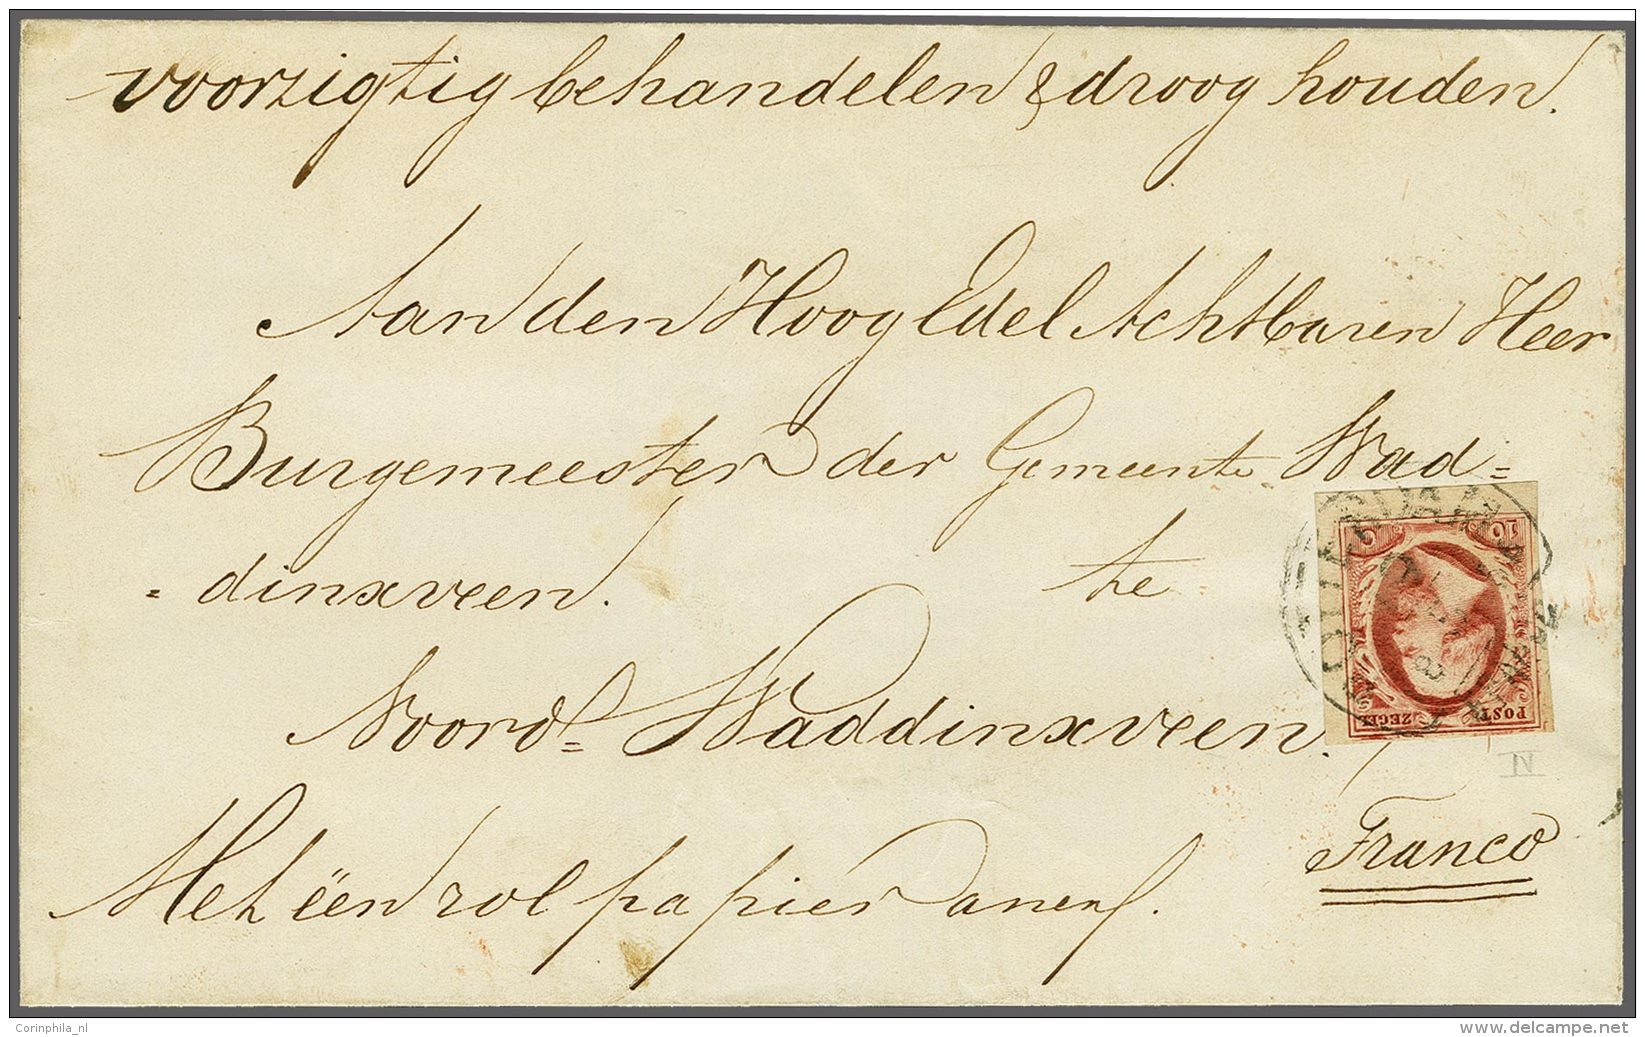 voorzigtig behandelen & droog houden.
Aan den Hoog Edel Achtbaren Heer
Burgemeester der Gemeente Wad=
= dinxveen. te
Noord= Waddinxveen.
Franco
Met ëën rol papier
POST ZEGEL
IV
Corinphila_nl
www.delcampe.net